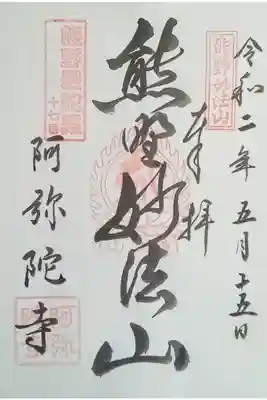 令和二年五月十五日
熊野妙法山
奉拝
熊野妙法山
熊野曼陀羅
十七番
阿弥陀寺